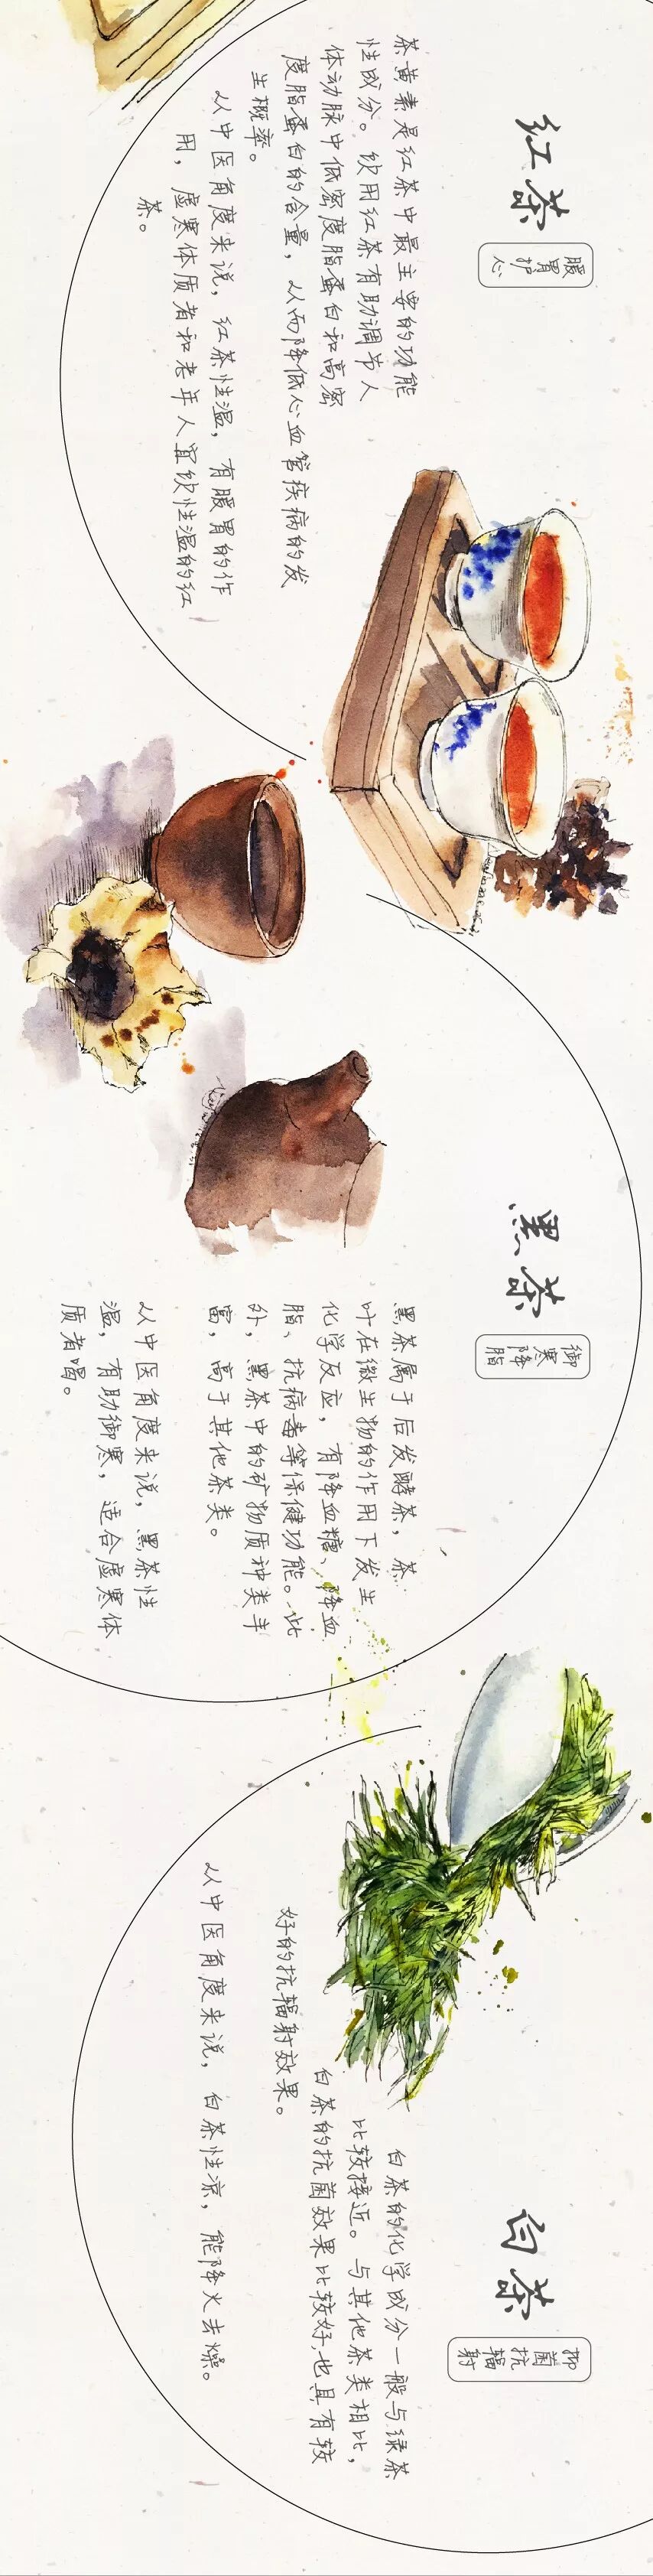 红茶
暖胃护心
茶黄素是红茶中最主要的功能
性成分。饮用红茶有助调节人
体动脉中低密度脂蛋白和高密
度脂蛋白的含量，从而降低心血管疾病的发
生概率。
从中医角度来说，红茶性温，有暖胃的作
用，虚寒体质者和老年人宜饮性温的红
茶。
黑茶
御寒降脂
黑茶属于后发酵茶，茶
叶在微生物的作用下发生
化学反应，有降血糖、降血
脂、抗病毒等保健功能。此
外，黑茶中的矿物质种类丰
富，高于其他茶类。
从中医角度来说，黑茶性
温，有助御寒，适合虚寒体
质者喝。
白茶
抑菌抗辐射
白茶的化学成分一般与绿茶
比较接近。与其他茶类相比，
白茶的抗菌效果比较好，也具有较
好的抗辐射效果。
从中医角度来说，白茶性凉，能降火去燥。